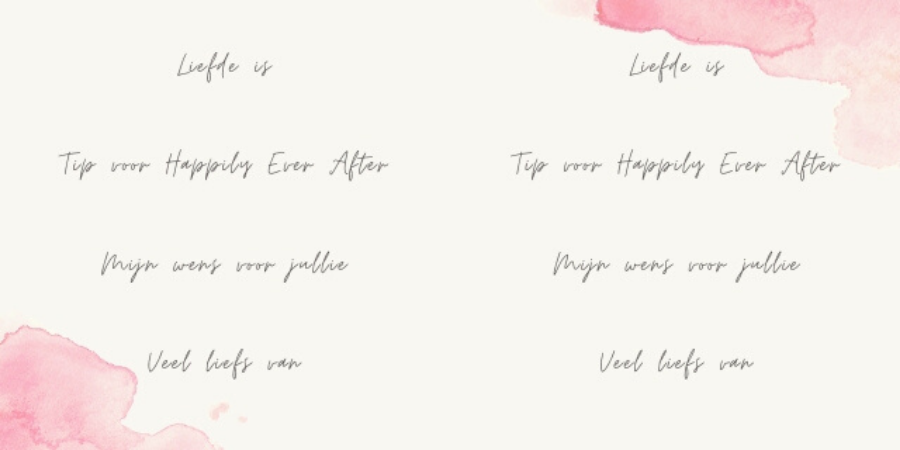 Liefde is
Tip voor Happily Ever After
Mijn wens voor jullie
Veel liefs van
Liefde is
Tip voor Happily Ever After
Mijn wens voor jullie
Veel liefs van